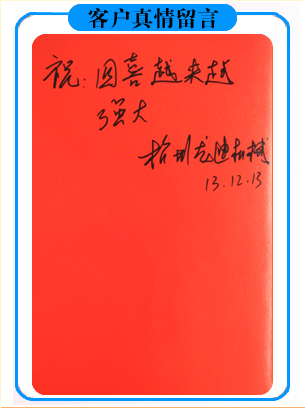 客户真情留言
祝:固喜越来越
强大
杭州龙迪机械
13.12.13